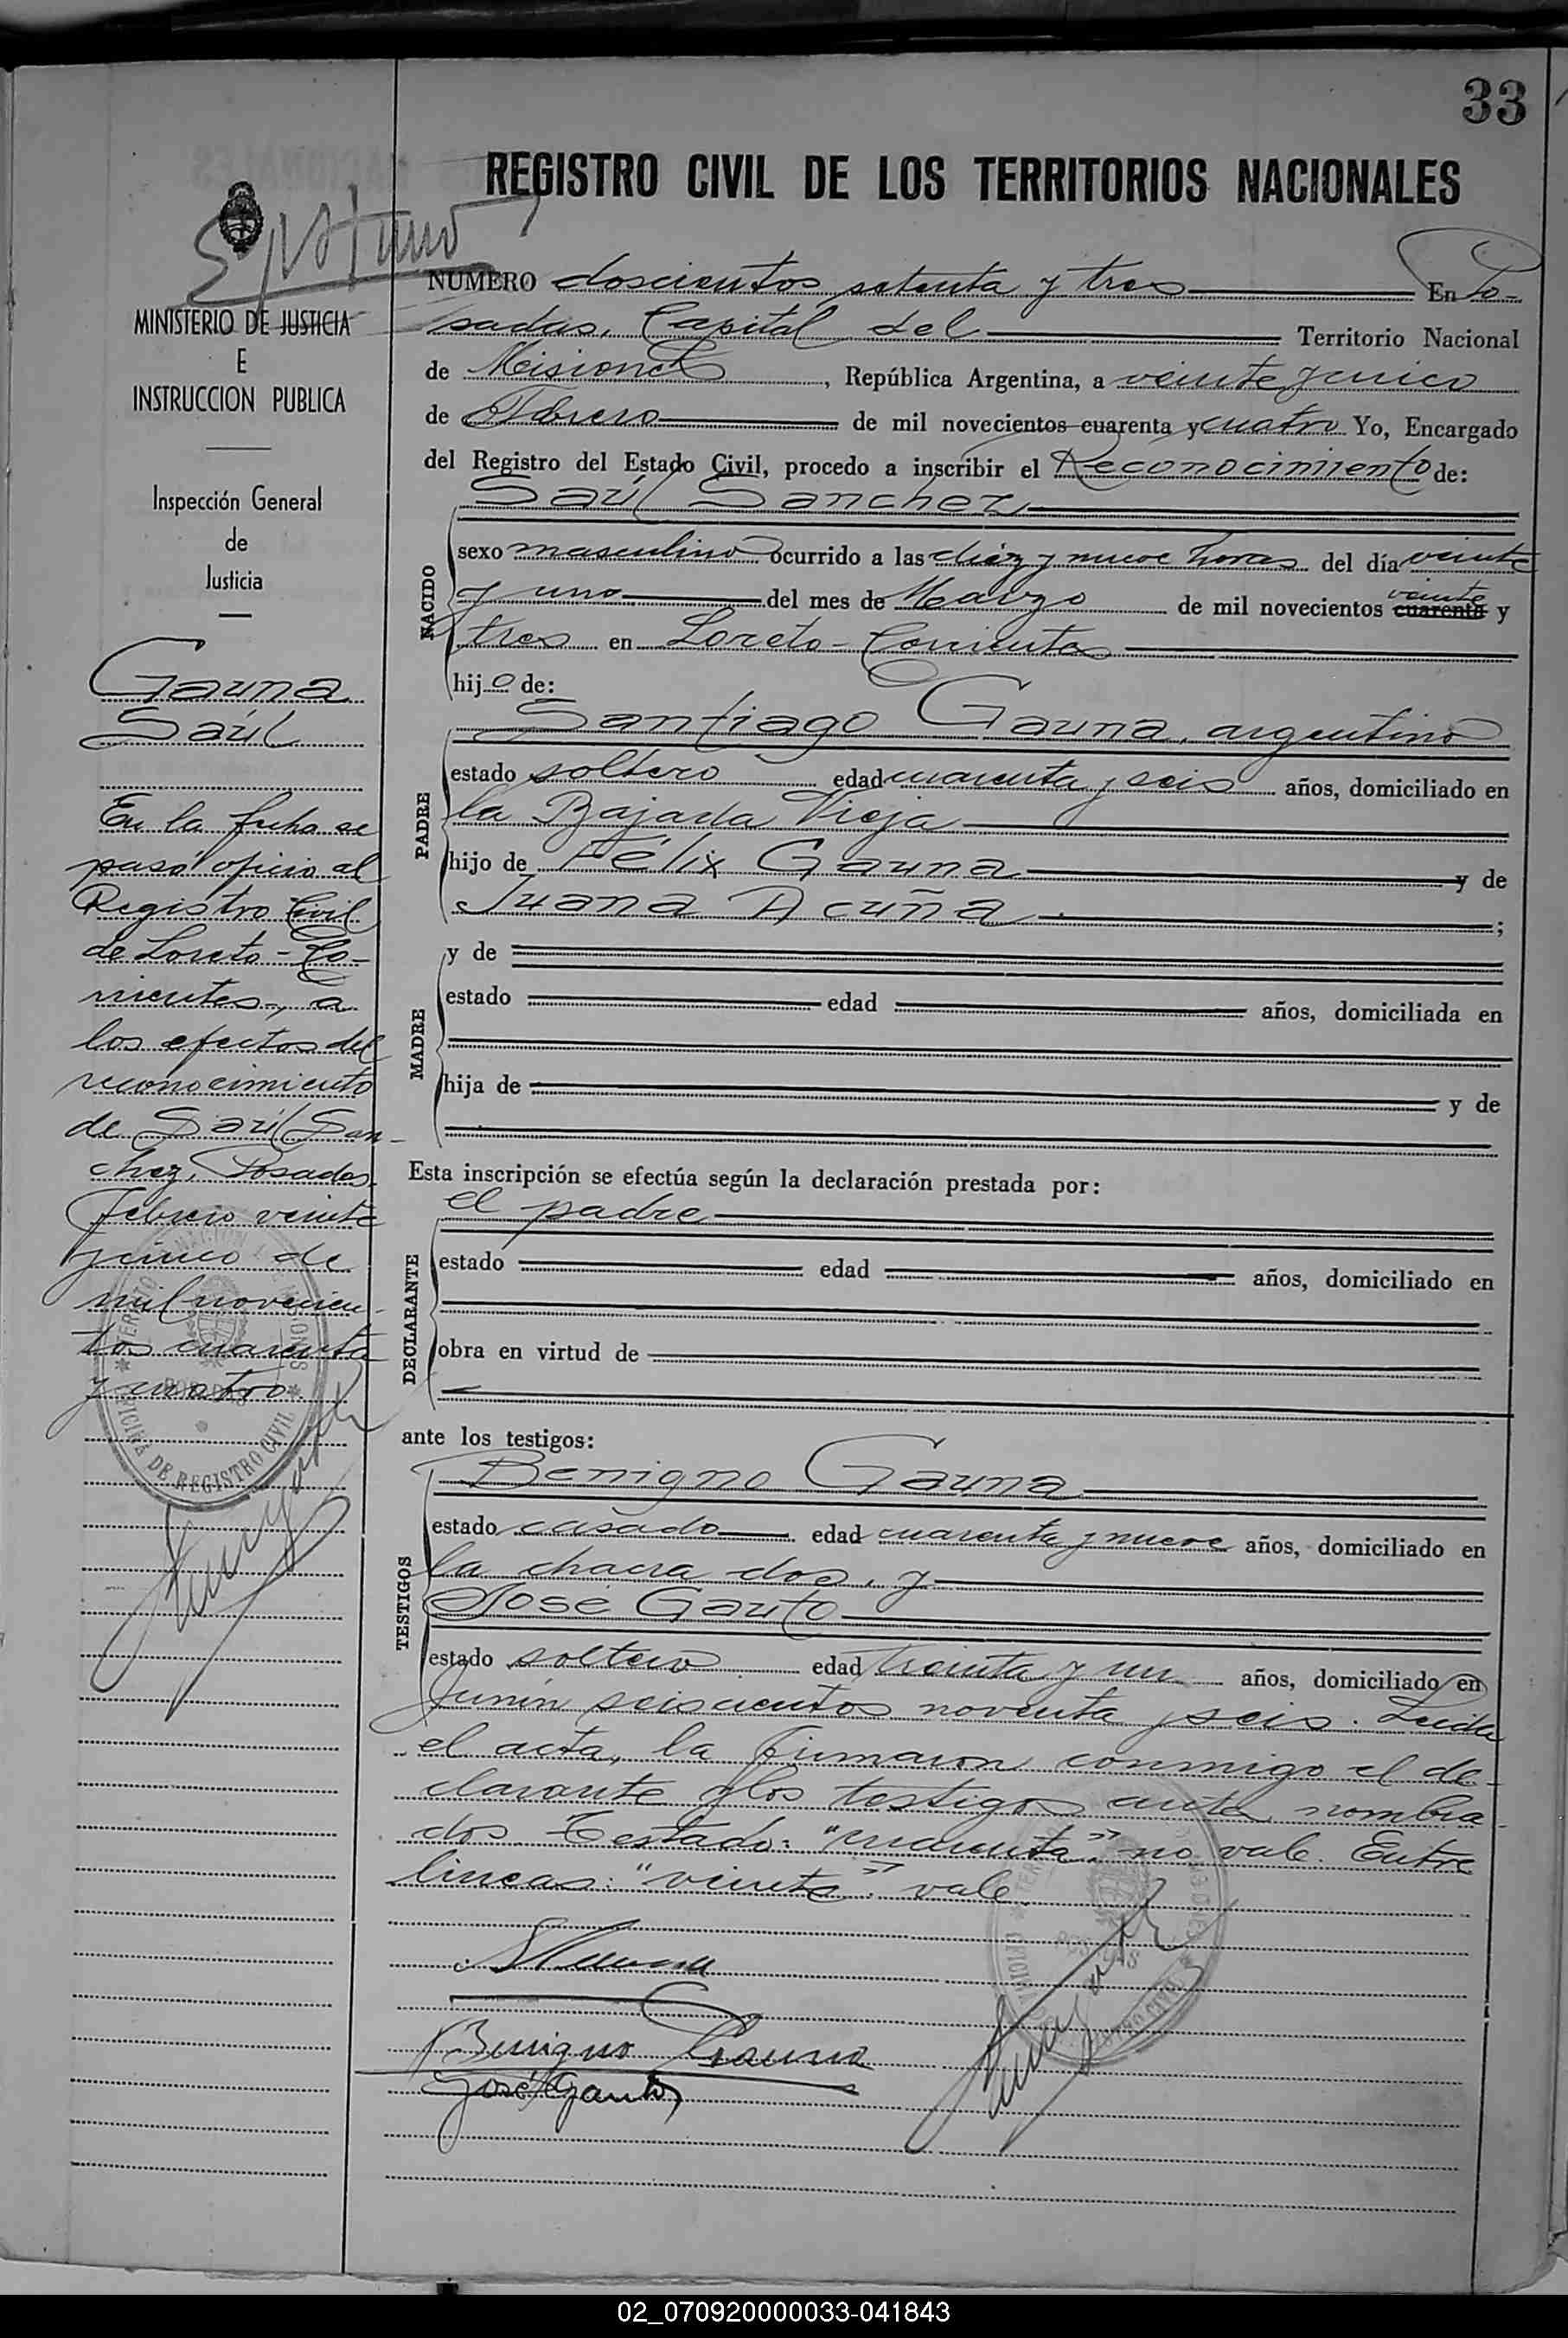 33
REGISTRO CIVIL DE LOS TERRITORIOS NACIONALES
MINISTERIO DE JUSTICIA
E
INSTRUCCION PUBLICA
Inspección General
de
Justicia
Gauna
Saúl
En la fecha se
pasó oficio al
Registro Civil
de Loreto - Co-
rrientes, a
los efectos del
reconocimiento
de Saúl San-
chez. Posadas,
Febrero veinte
y cinco de
mil novecien-
tos cuarenta
y cuatro.
OFICINA DE REGISTRO CIVIL
POSADAS
NUMERO doscientos setenta y tres En Po-
sadas, Capital del Territorio Nacional
de Misiones, República Argentina, a veinte y cinco
de Febrero de mil novecientos cuarenta y cuatro Yo, Encargado
del Registro del Estado Civil, procedo a inscribir el Reconocimiento de:
Saúl Sanchez
NACIDO
sexo masculino ocurrido a las diez y nueve horas del día veinte
y uno del mes de Marzo de mil novecientos cuarenta veinte y
tres en Loreto - Corrientes
hijo de:
PADRE
Santiago Gauna, argentino
estado soltero edad cuarenta y seis años, domiciliado en
la Bajada Vieja
hijo de Félix Gauna y de
Juana Acuña ;
MADRE
y de
estado edad años, domiciliada en
hija de y de
Esta inscripción se efectúa según la declaración prestada por:
DECLARANTE
el padre
estado edad años, domiciliado en
obra en virtud de
ante los testigos:
TESTIGOS
Benigno Gauna
estado casado edad cuarenta y nueve años, domiciliado en
la chacra dos, y
José Gauto
estado soltero edad treinta y un años, domiciliado en
Junín seiscientos noventa y seis. Leída
el acta, la firmaron conmigo el de-
clarante y los testigos antes nombra-
dos. Testado: "cuarenta": no vale. Entre
líneas: "veinte": vale
Benigno Gauna
José Gauto
02_070920000033-041843